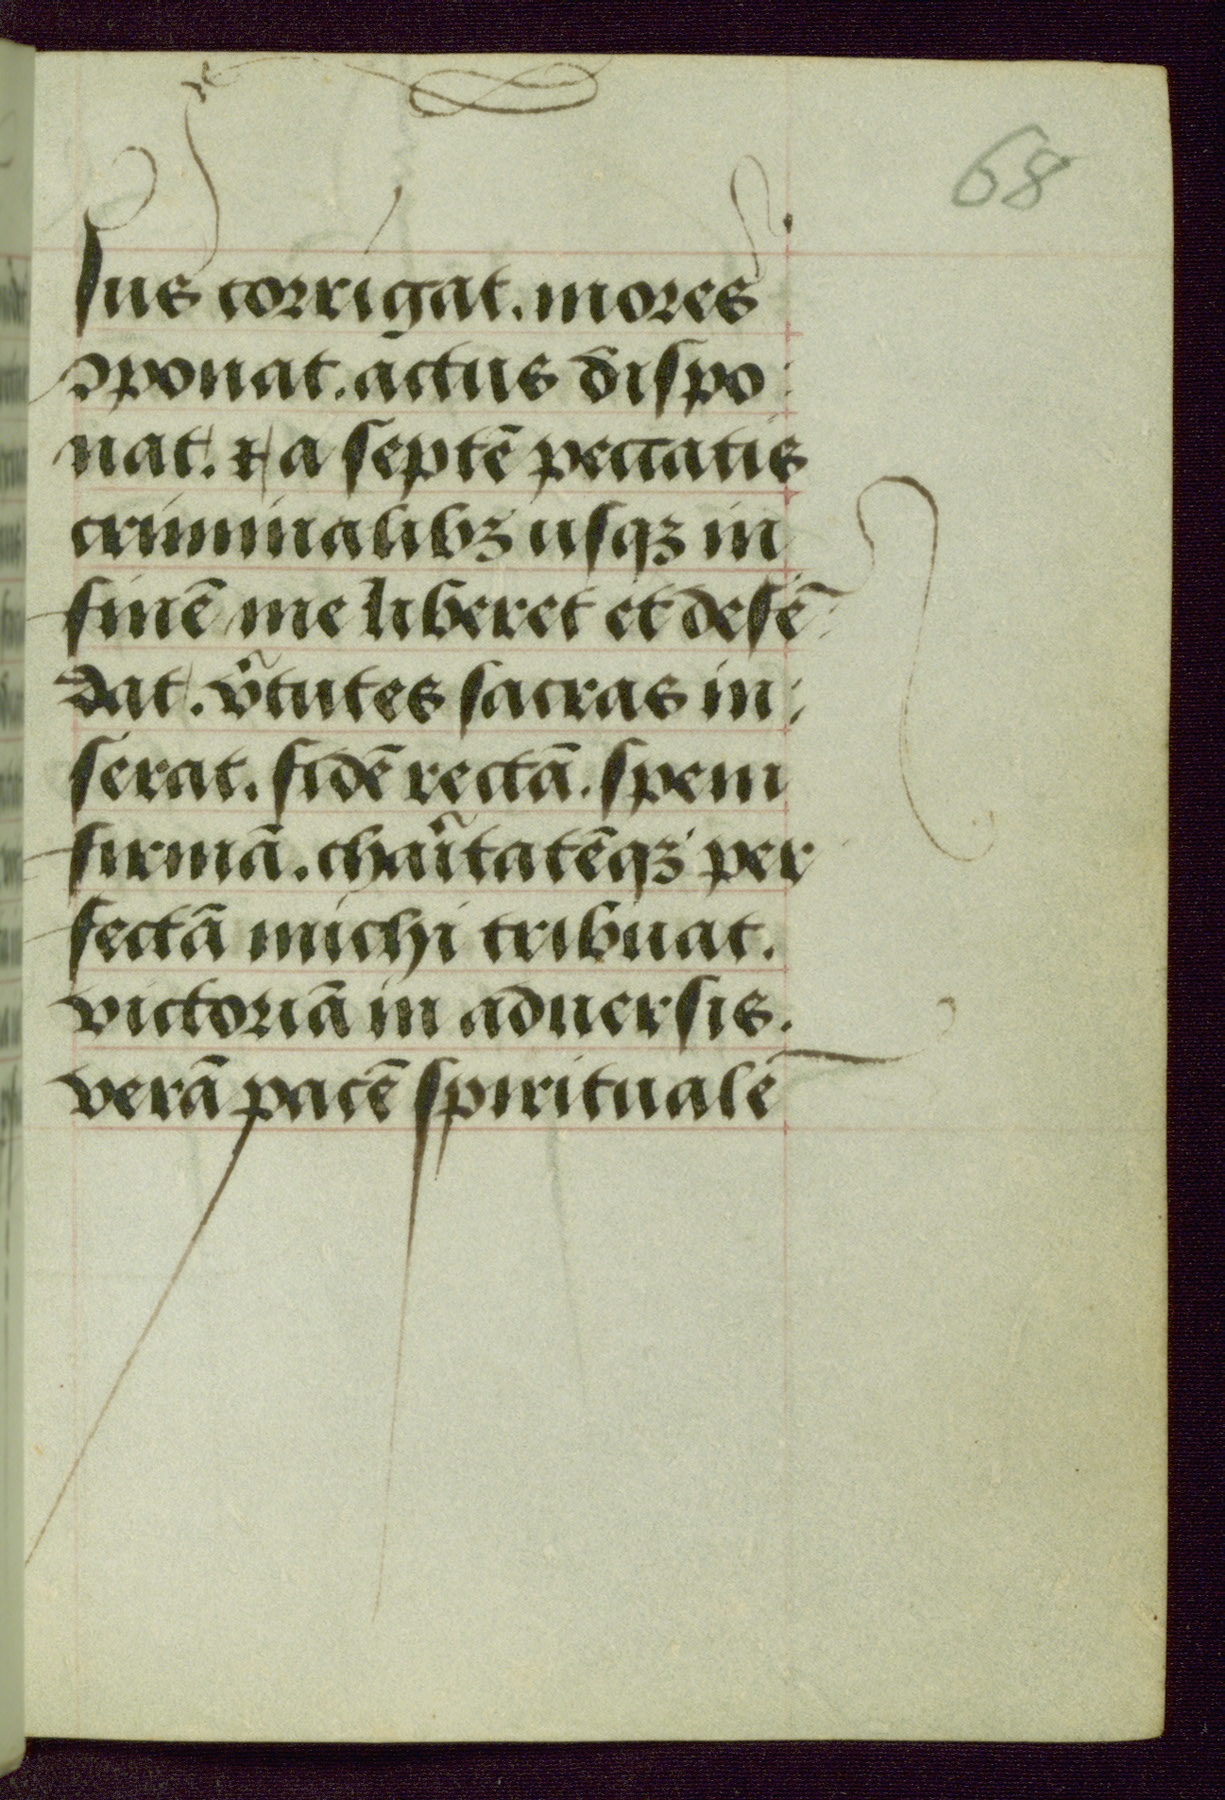 68
sus corrigat. mores
ꝯponat. actus dispo
nat. ⁊ a septē peccatis
criminalibꝫ usqꝫ in
finē me liberet et defē
dat. v̾tutes sacras in
serat. fidē rectā. spem
firmā. char̾tatēqꝫ per
fectā michi tribuat.
victoriā in aduersis.
verā pacē spiritualē